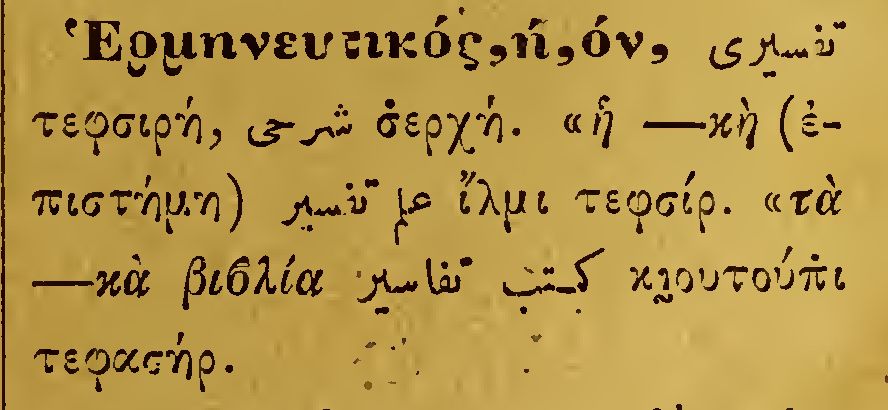 Ἑρμηνευτικός, ή, όν, تفسیری
τεφσιρή, شرحی σ̇ερχή. «ἡ —κὴ (ἐ-
πιστήμη) علم تفسیر ἴλμι τεφσίρ. «τὰ
—κὰ βιβλία كتب تفاسیر κι̯ουτούπ̇ι
τεφασήρ.